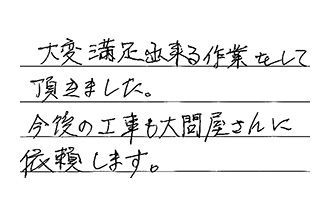 大変満足出来る作業をして
頂きました。
今後の工事も大問屋さんに
依頼します。